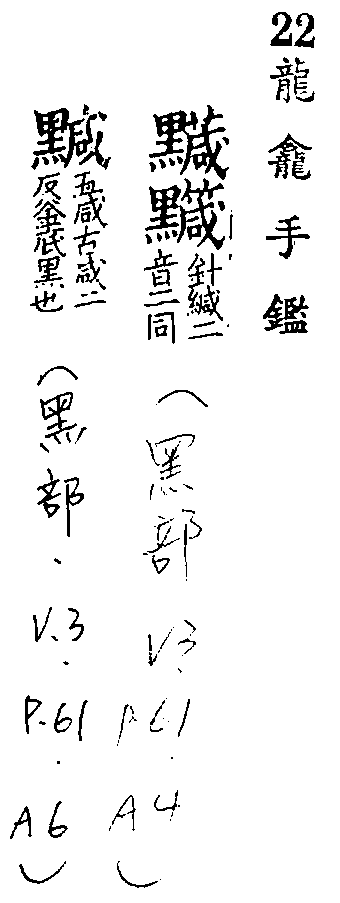 22 龍龕手鑑
針緘二音二同
(黑部.V.3.P.61.A4)
黬五咸古咸二反釜底黑也
(黑部.V.3.P.61.A6)